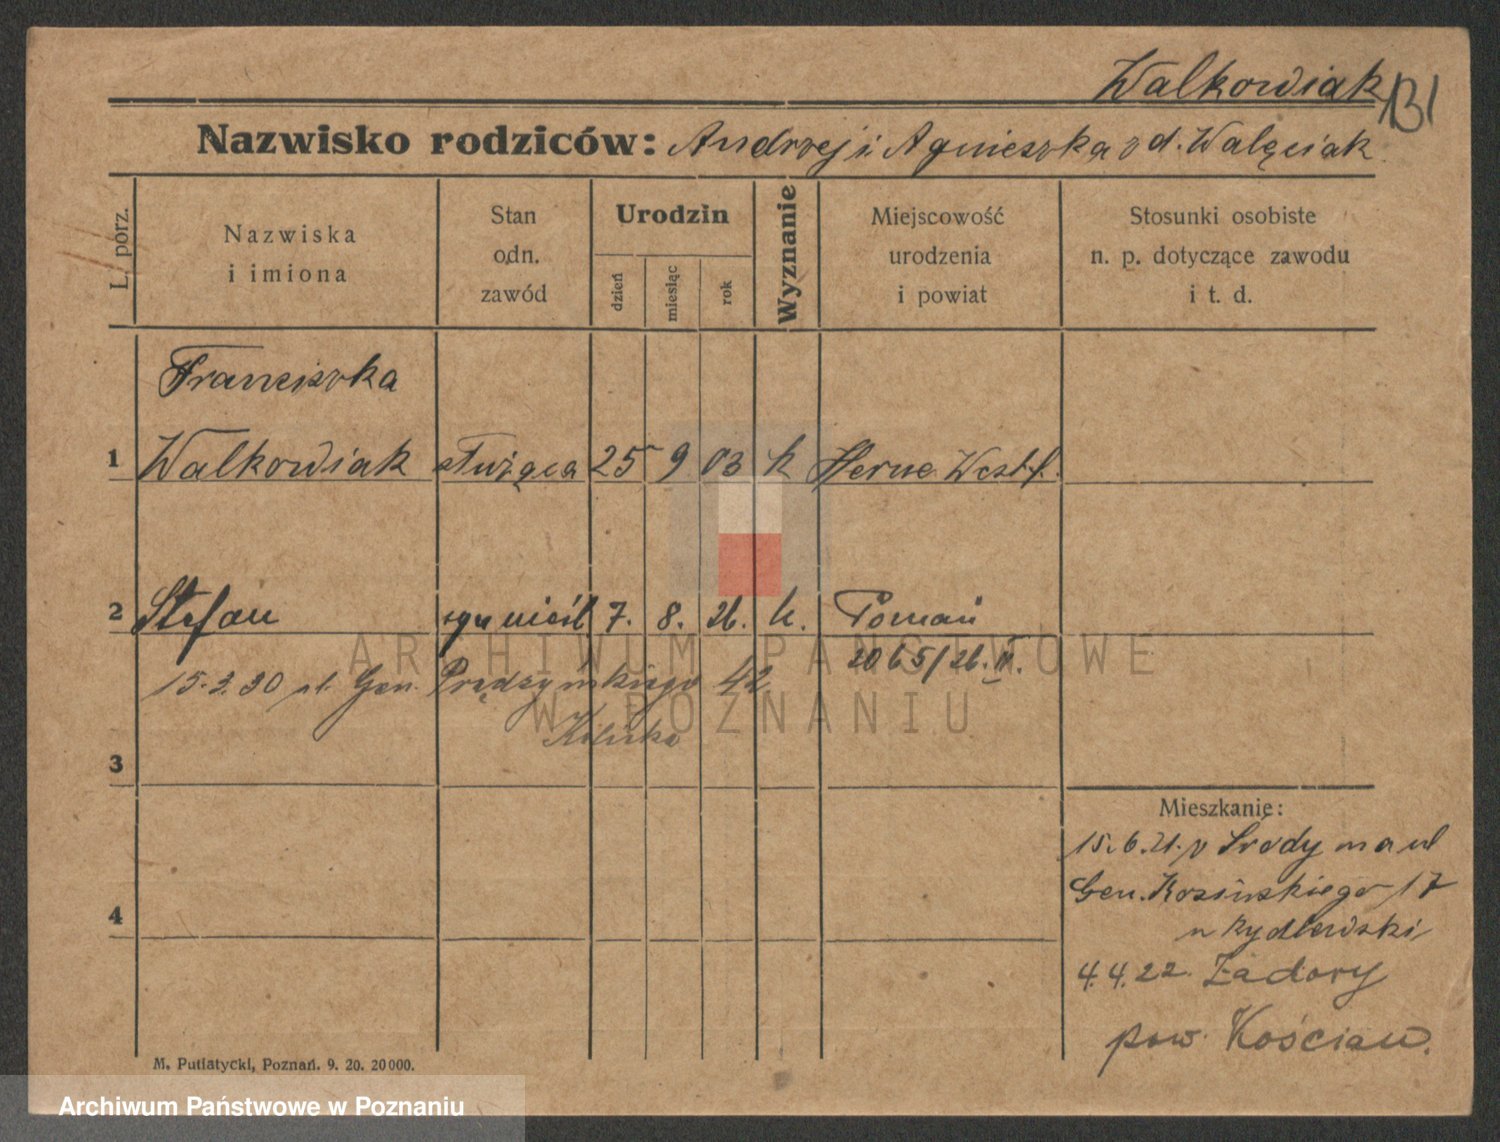 Walkowiak
131
Nazwisko rodziców: Andrzej i Agnieszka z d. Walęciak
L. porz.
Nazwiska
i imiona
Stan
odn.
zawód
Urodzin
dzień
miesiąc
rok
Wyznanie
Miejscowość
urodzenia
i powiat
Stosunki osobiste
n. p. dotyczące zawodu
i t. d.
Franciszka
1 Walkowiak służąca 25 9 03 k Herne Westf.
2 Stefan syn nieśl. 7. 8. 26. k. Poznań
2065/26. II.
15.3.30 ul. Gen. Prądzyńskiego 42
3
Mieszkanie:
15.6.21. z Środy na ul
Gen. Kosińskiego 17
u Rydlewski
4
4.4.22. Zadory
pow. Kościan.
M. Putiatycki, Poznań. 9. 20. 20000.
ARCHIWUM PAŃSTWOWE
W POZNANIU
Archiwum Państwowe w Poznaniu